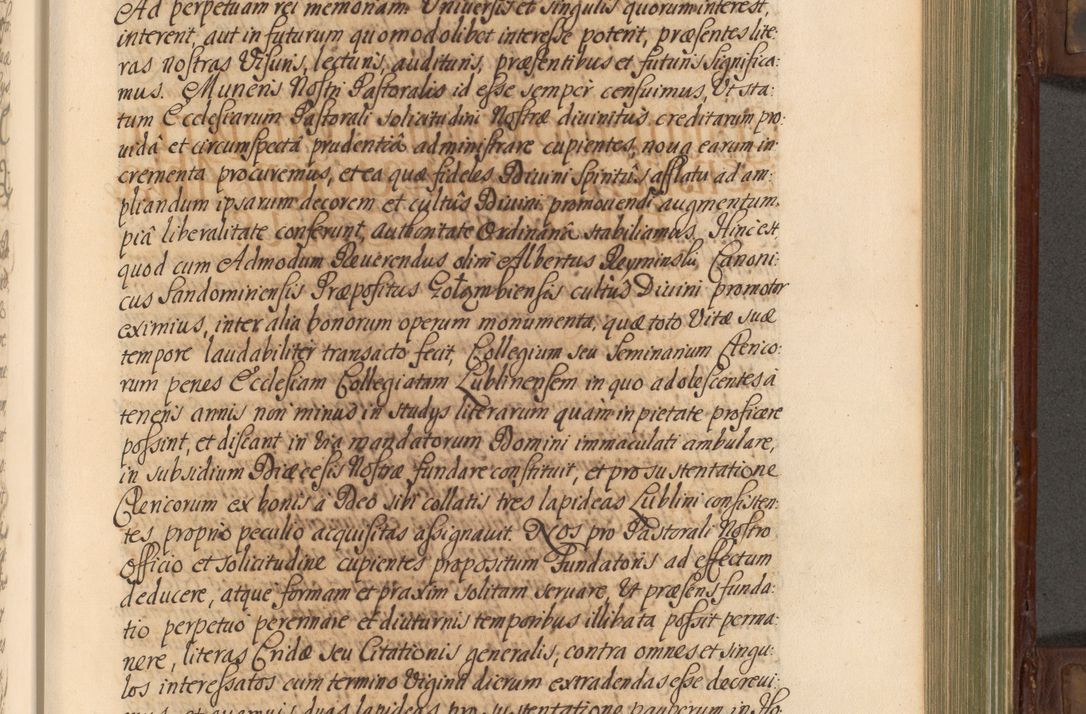 Ad perpetuam rei memoriam Universis et singulis quorum interest,
intererit, aut in futurum quomodolibet interesse poterit, præsentes lite:
ras nostras Visuris, lecturis, audituris, præsentibus et futuris significa:
mus. Muneris Nostri Pastoralis id esse semper censuimus, Ut sta:
tum Ecclesiarum Pastorali solicitudini Nostræ divinitus creditarum pro:
uidâ et circumspectâ prudentiâ administrare cupientes, noua earum in:
crementa procuremus, et ea quæ fideles Diuini Spiritûs afflatu ad am:
pliandum ipsarum decorem et cultûs Diuini promouendi augmentum,
piâ liberalitate conferunt, authoritate Ordinariâ stabiliamus. Hinc est
quod cum Admodum Reuerendus olim Albertus Reyminski, Canoni:
cus Sandomiriensis Præpositus Gołąmbiensis cultûs Diuini promotor
eximius, inter alia bonorum operum monumenta, quæ toto Vitæ suæ
tempore laudabiliter transacto fecit, Collegium seu Seminarium Clerico:
rum penes Ecclesiam Collegiatam Lublinensem in quo adolescentes à
teneris annis non minus in studys literarum quam in pietate proficere
possint, et discant in via mandatorum Domini immaculati ambulare,
in subsidium Diæcesis Nostræ fundare constituit, et pro sustentatione
Clericorum ex bonis à Deo sibi collatis tres lapideas Lublini consisten:
tes proprio peculio acquisitas assignauit. Nos pro Pastorali Nostro
Officio et solicitudine cupientes propositum Fundatoris ad effectum
deducere, atque formam et praxim solitam seruare, Ut præsens funda:
tio perpetuo perennare et diuturnis temporibus illibata possit perma:
nere, literas Cridæ seu Citationis generalis, contra omnes et singu:
los interessatos cum termino Viginti dierum extradendas esse decreui:
mus, et quamuis duas lapideas pro sustentatione pauperum in Ho